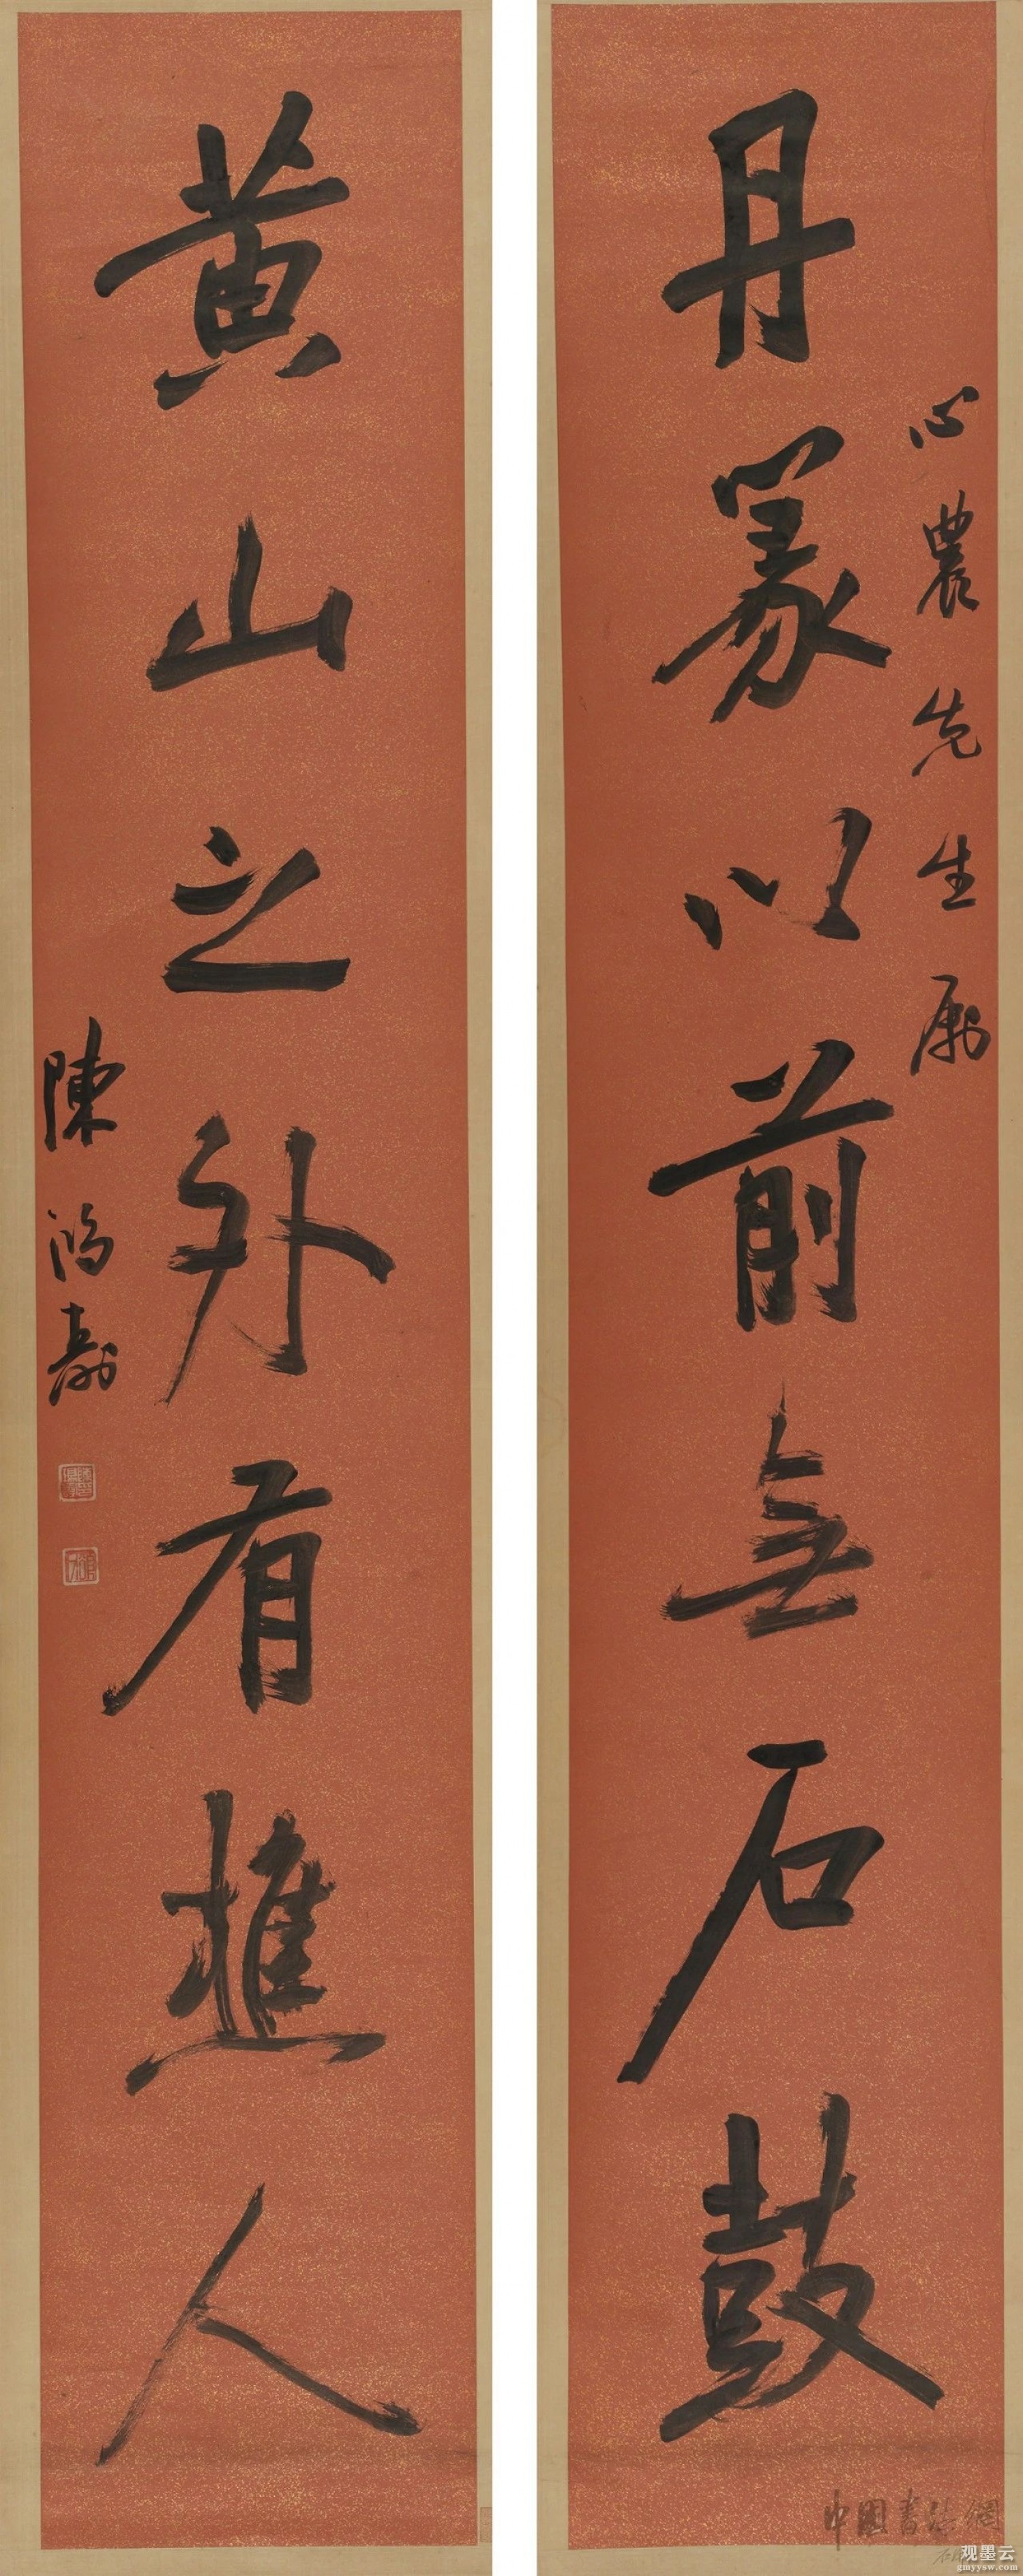 心農先生屬
丹篆以前無石鼓
黄山之外有樵人
陳鴻壽
中國書法網
观墨云
gmyysw.com